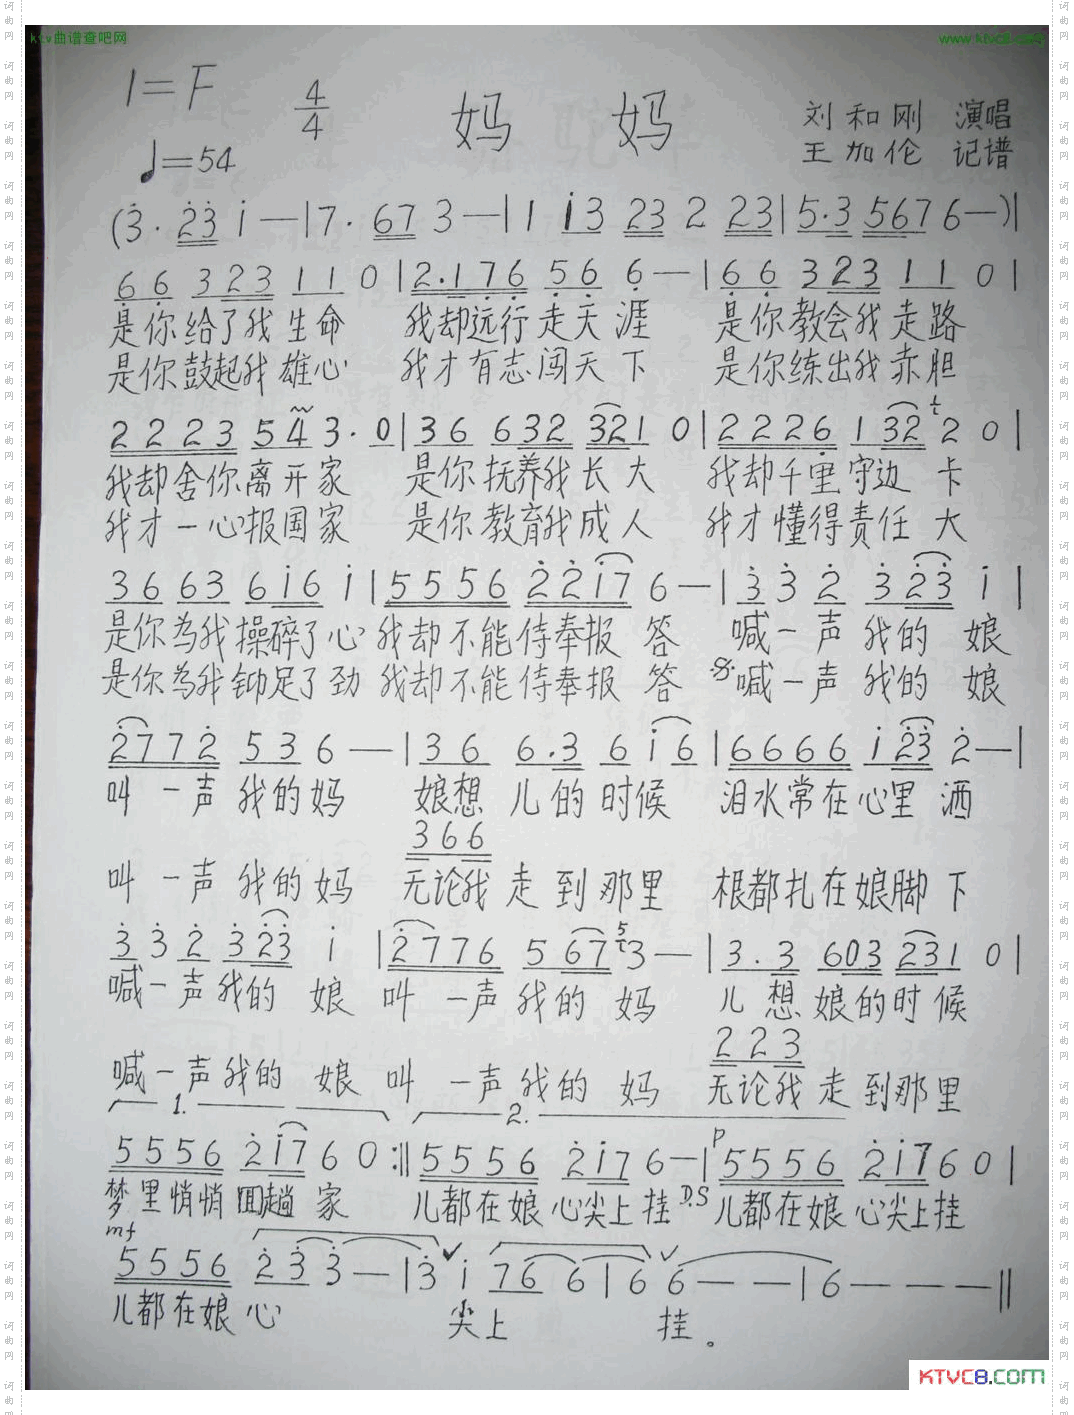 ktv曲谱查吧网
www.ktvc8.com
1=F 4/4 妈 妈 刘和刚 演唱
♩=54 王加伦 记谱
(3̇· 2̇3̇ i — | 7· 67 3 — | 1 i3 23 2 23 | 5·3 567 6 — )|
66 323 11 0 | 2·176 56 6 — | 66 323 11 0 |
是你给了我生命 我却远行走天涯 是你教会我走路
是你鼓起我雄心 我才有志闯天下 是你练出我赤胆
2223 54 3· 0 | 36 632 321 0 | 2226 132 2 0 |
我却舍你离开家 是你抚养我长大 我却千里守边卡
我才一心报国家 是你教育我成人 我才懂得责任大
36 63 6i6 i | 5556 2̇2̇i7 6 — | 3̇ 3̇ 2̇ 3̇2̇3̇ i |
是你为我操碎了心 我却不能侍奉报答 喊一声我的娘
是你为我铆足了劲 我却不能侍奉报答 喊一声我的娘
2̇772̇ 536 — | 36 6·3 6i6 | 6666 i2̇3̇ 2̇ — |
叫一声我的妈 娘想儿的时候 泪水常在心里洒
366
叫一声我的妈 无论我走到那里 根都扎在娘脚下
3̇ 3̇ 2̇ 3̇2̇3̇ i | 2̇776 567 3 — | 3·3 603 231 0 |
喊一声我的娘 叫一声我的妈 儿想娘的时候
223
喊一声我的娘 叫一声我的妈 无论我走到那里
1. 2.
5556 2̇i7 6 0 :|| 5556 2̇i7 6 — | p 5556 2̇i7 6 0 |
梦里悄悄回趟家 儿都在娘心尖上挂 D.S 儿都在娘心尖上挂
mf
5556 2̇3̇ 3̇ — | 3̇ i 76 6 | 6 6 — — | 6 — — — ||
儿都在娘心 尖上 挂。
KTVC8.com